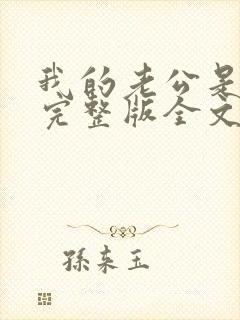 我的老公是
完整版全文
孫束玉